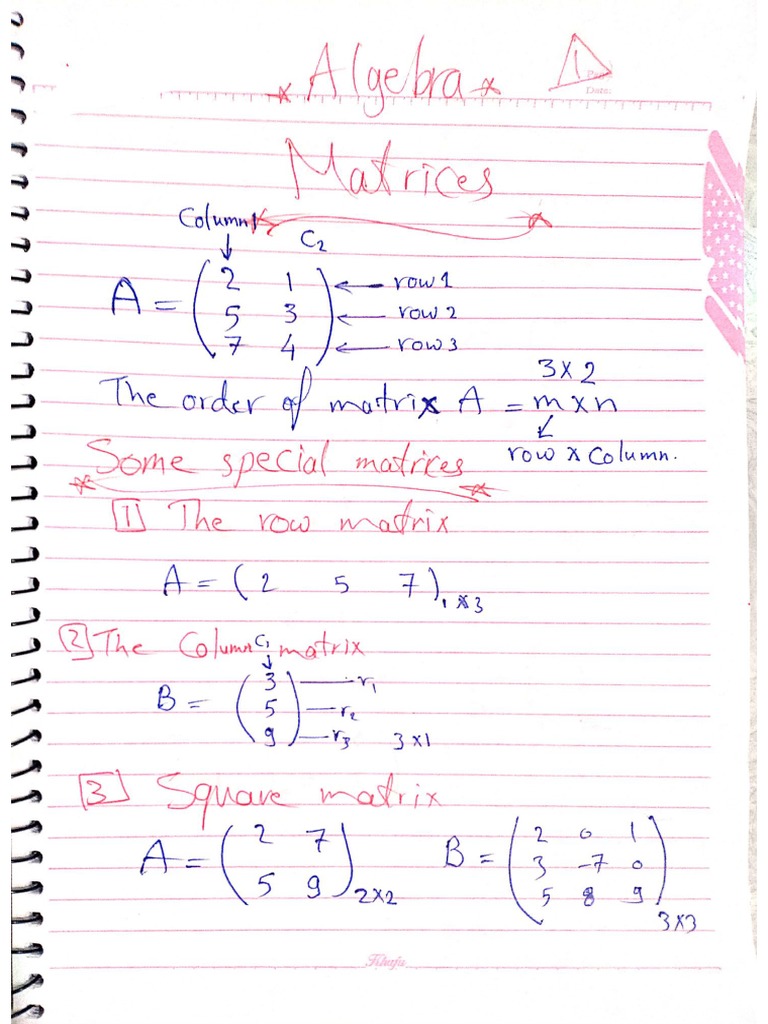 * Algebra *
1
Date:
Matrices
Column 1 C₂
A = ( 2 1 ) ← row 1
( 5 3 ) ← row 2
( 7 4 ) ← row 3
3 x 2
The order of matrix A = m x n
row x Column.
Some special matrices
[1] The row matrix
A = ( 2 5 7 ) 1 x 3
[2] The Column matrix
C₁
B = ( 3 ) — r₁
( 5 ) — r₂
( 9 ) — r₃ 3 x 1
[3] Square matrix
A = ( 2 7 ) B = ( 2 0 1 )
( 3 -7 0 )
( 5 9 ) 2x2 ( 5 8 9 ) 3x3